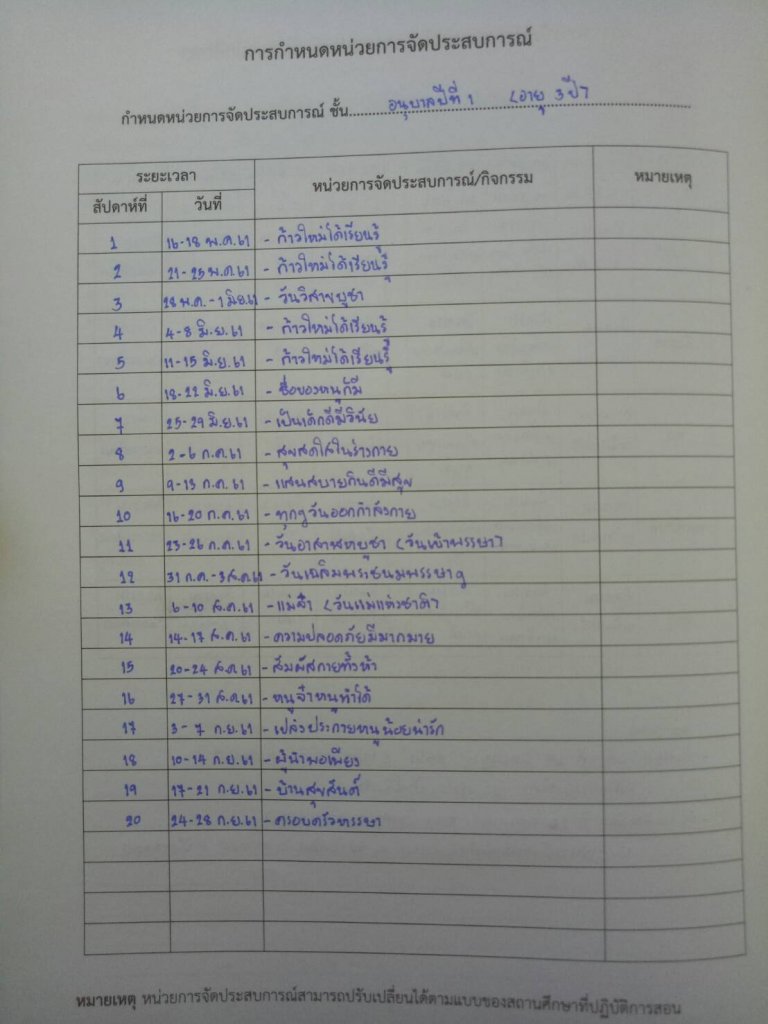 การกำหนดหน่วยการจัดประสบการณ์
กำหนดหน่วยการจัดประสบการณ์ ชั้น.....อนุบาลปีที่ 1 (อายุ 3 ปี).....
ระยะเวลา หน่วยการจัดประสบการณ์/กิจกรรม หมายเหตุ
สัปดาห์ที่ วันที่
1 16-18 พ.ค.61 - ก้าวใหม่ได้เรียนรู้
2 21-25 พ.ค.61 - ก้าวใหม่ได้เรียนรู้
3 28 พ.ค.-1 มิ.ย.61 - วันวิสาขบูชา
4 4-8 มิ.ย.61 - ก้าวใหม่ได้เรียนรู้
5 11-15 มิ.ย.61 - ก้าวใหม่ได้เรียนรู้
6 18-22 มิ.ย.61 - ชื่อของหนูก็มี
7 25-29 มิ.ย.61 - เป็นเด็กดีมีวินัย
8 2-6 ก.ค.61 - สุขสดใสในร่างกาย
9 9-13 ก.ค.61 - แสนสบายกินดีมีสุข
10 16-20 ก.ค.61 - ทุกๆวันออกกำลังกาย
11 23-26 ก.ค.61 - วันอาสาฬหบูชา (วันเข้าพรรษา)
12 31 ก.ค.-3 ส.ค.61 - วันเฉลิมพระชนมพรรษาฯ
13 6-10 ส.ค.61 - แม่จ๋า (วันแม่แห่งชาติ)
14 14-17 ส.ค.61 - ความปลอดภัยมีมากมาย
15 20-24 ส.ค.61 - สัมผัสกายทั้งห้า
16 27-31 ส.ค.61 - หนูจ๋าหนูทำได้
17 3-7 ก.ย.61 - เปล่งประกายหนูน้อยน่ารัก
18 10-14 ก.ย.61 - ผู้นำพอเพียง
19 17-21 ก.ย.61 - บ้านสุขสันต์
20 24-28 ก.ย.61 - ครอบครัวหรรษา
หมายเหตุ หน่วยการจัดประสบการณ์สามารถปรับเปลี่ยนได้ตามแบบของสถานศึกษาที่ปฏิบัติการสอน